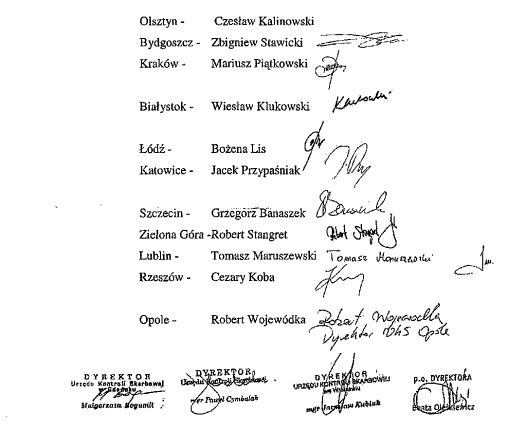 Olsztyn - Czesław Kalinowski
Bydgoszcz - Zbigniew Stawicki
Kraków - Mariusz Piątkowski
Białystok - Wiesław Klukowski
Łódź - Bożena Lis
Katowice - Jacek Przypaśniak
Szczecin - Grzegorz Banaszek
Zielona Góra -Robert Stangret
Lublin - Tomasz Maruszewski Tomasz Maruszewski
Rzeszów - Cezary Koba
Opole - Robert Wojewódka Robert Wojewódka
Dyrektor UKS Opole
DYREKTOR
Urzędu Kontroli Skarbowej
w Gdańsku
Małgorzata Bogumił
DYREKTOR
Urzędu Kontroli Skarbowej
mgr Paweł Cybulak
DYREKTOR
URZĘDU KONTROLI SKARBOWEJ
mgr Jarosław Kubiak
p.o. DYREKTORA
Beata Oleśkiewicz